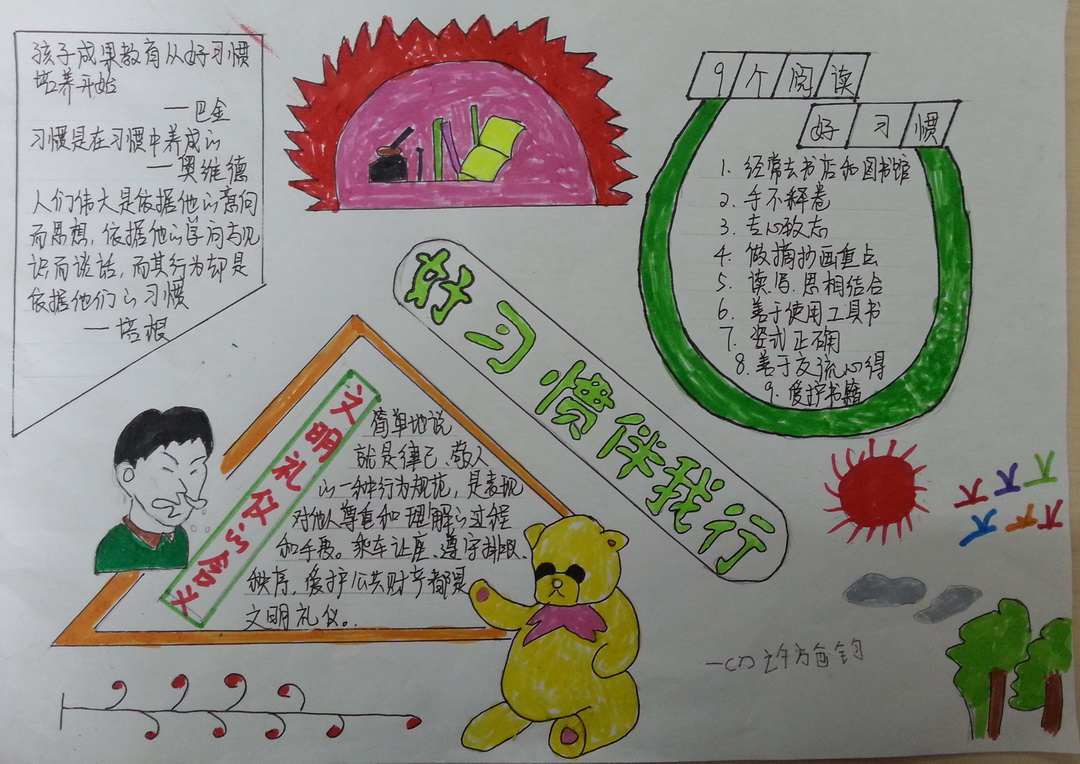 孩子成果教育从好习惯
培养开始
—巴金
习惯是在习惯中养成的
—奥维德
人们伟大是依据他的意向
而思想，依据他的学问与见
识而谈话，而其行为却是
依据他们的习惯
—培根
9个阅读
好习惯
1. 经常去书店和图书馆
2. 手不释卷
3. 专心致志
4. 做摘抄画重点
5. 读、写、思相结合
6. 善于使用工具书
7. 姿式正确
8. 善于交流心得
9. 爱护书籍
好习惯伴我行
文明礼仪的含义
简单地说
就是律己、敬人
的一种行为规范，是表现
对他人尊重和理解的过程
和手段。乘车让座、遵守排队、
秩序，爱护公共财产都是
文明礼仪。